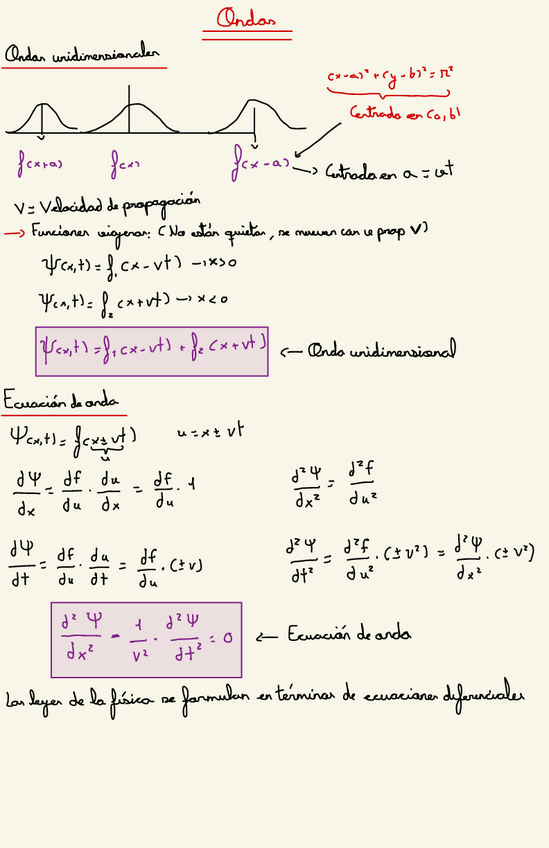 Ondas
Ondas unidimensionales
(x-a)² + (y-b)² = r²
Centrada en (a,b)
f(x+a) f(x) f(x-a) → Centrada en a = vt
V = Velocidad de propagación
→ Funciones viajeras: (No están quietas, se mueven con v prop V)
Ψ(x,t) = f₁(x-vt) → x>0
Ψ(x,t) = f₂(x+vt) → x<0
Ψ(x,t) = f₁(x-vt) + f₂(x+vt) ← Onda unidimensional
Ecuación de onda
Ψ(x,t) = f(x±vt) u = x ± vt
u
dΨ/dx = df/du · du/dx = df/du · 1 d²Ψ/dx² = d²f/du²
dΨ/dt = df/du · du/dt = df/du · (±v) d²Ψ/dt² = d²f/du² · (±v²) = d²Ψ/dx² · (±v²)
d²Ψ/dx² - 1/v² · d²Ψ/dt² = 0 ← Ecuación de onda
Las leyes de la física se formulan en términos de ecuaciones diferenciales